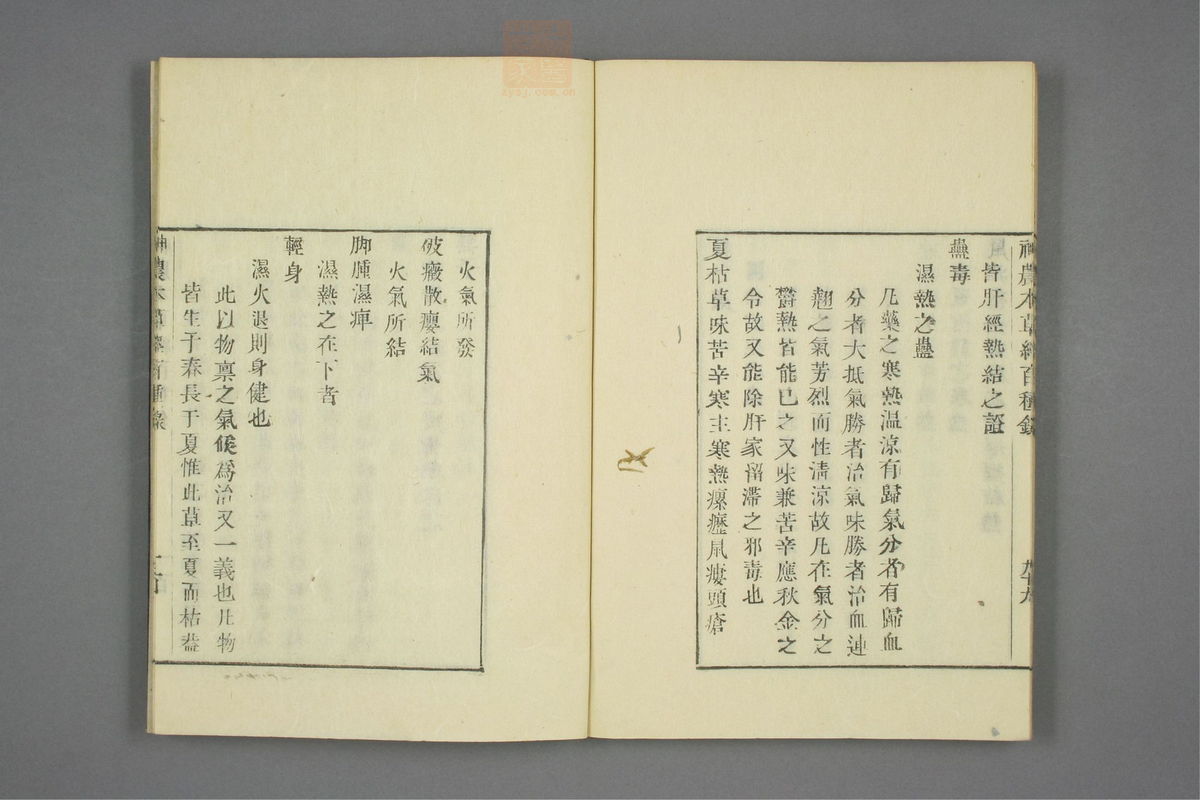 神農本草經百種錄
九十九
皆肝經熱結之證
蠱毒
濕熱之蠱
凡藥之寒熱温涼有歸氣分者有歸血
分者大抵氣勝者治氣味勝者治血連
翹之氣芳烈而性清涼故凡在氣分之
鬱熱皆能已之又味兼苦辛應秋金之
令故又能除肝家留滯之邪毒也
夏枯草味苦辛寒主寒熱瘰癧鼠瘻頭瘡
火氣所發
破癥散癭結氣
火氣所結
脚腫濕痺
濕熱之在下者
輕身
濕火退則身健也
此以物禀之氣候爲治又一義也凡物
皆生于春長于夏惟此草至夏而枯蓋
神農本草經百種錄
zysj.com.cn